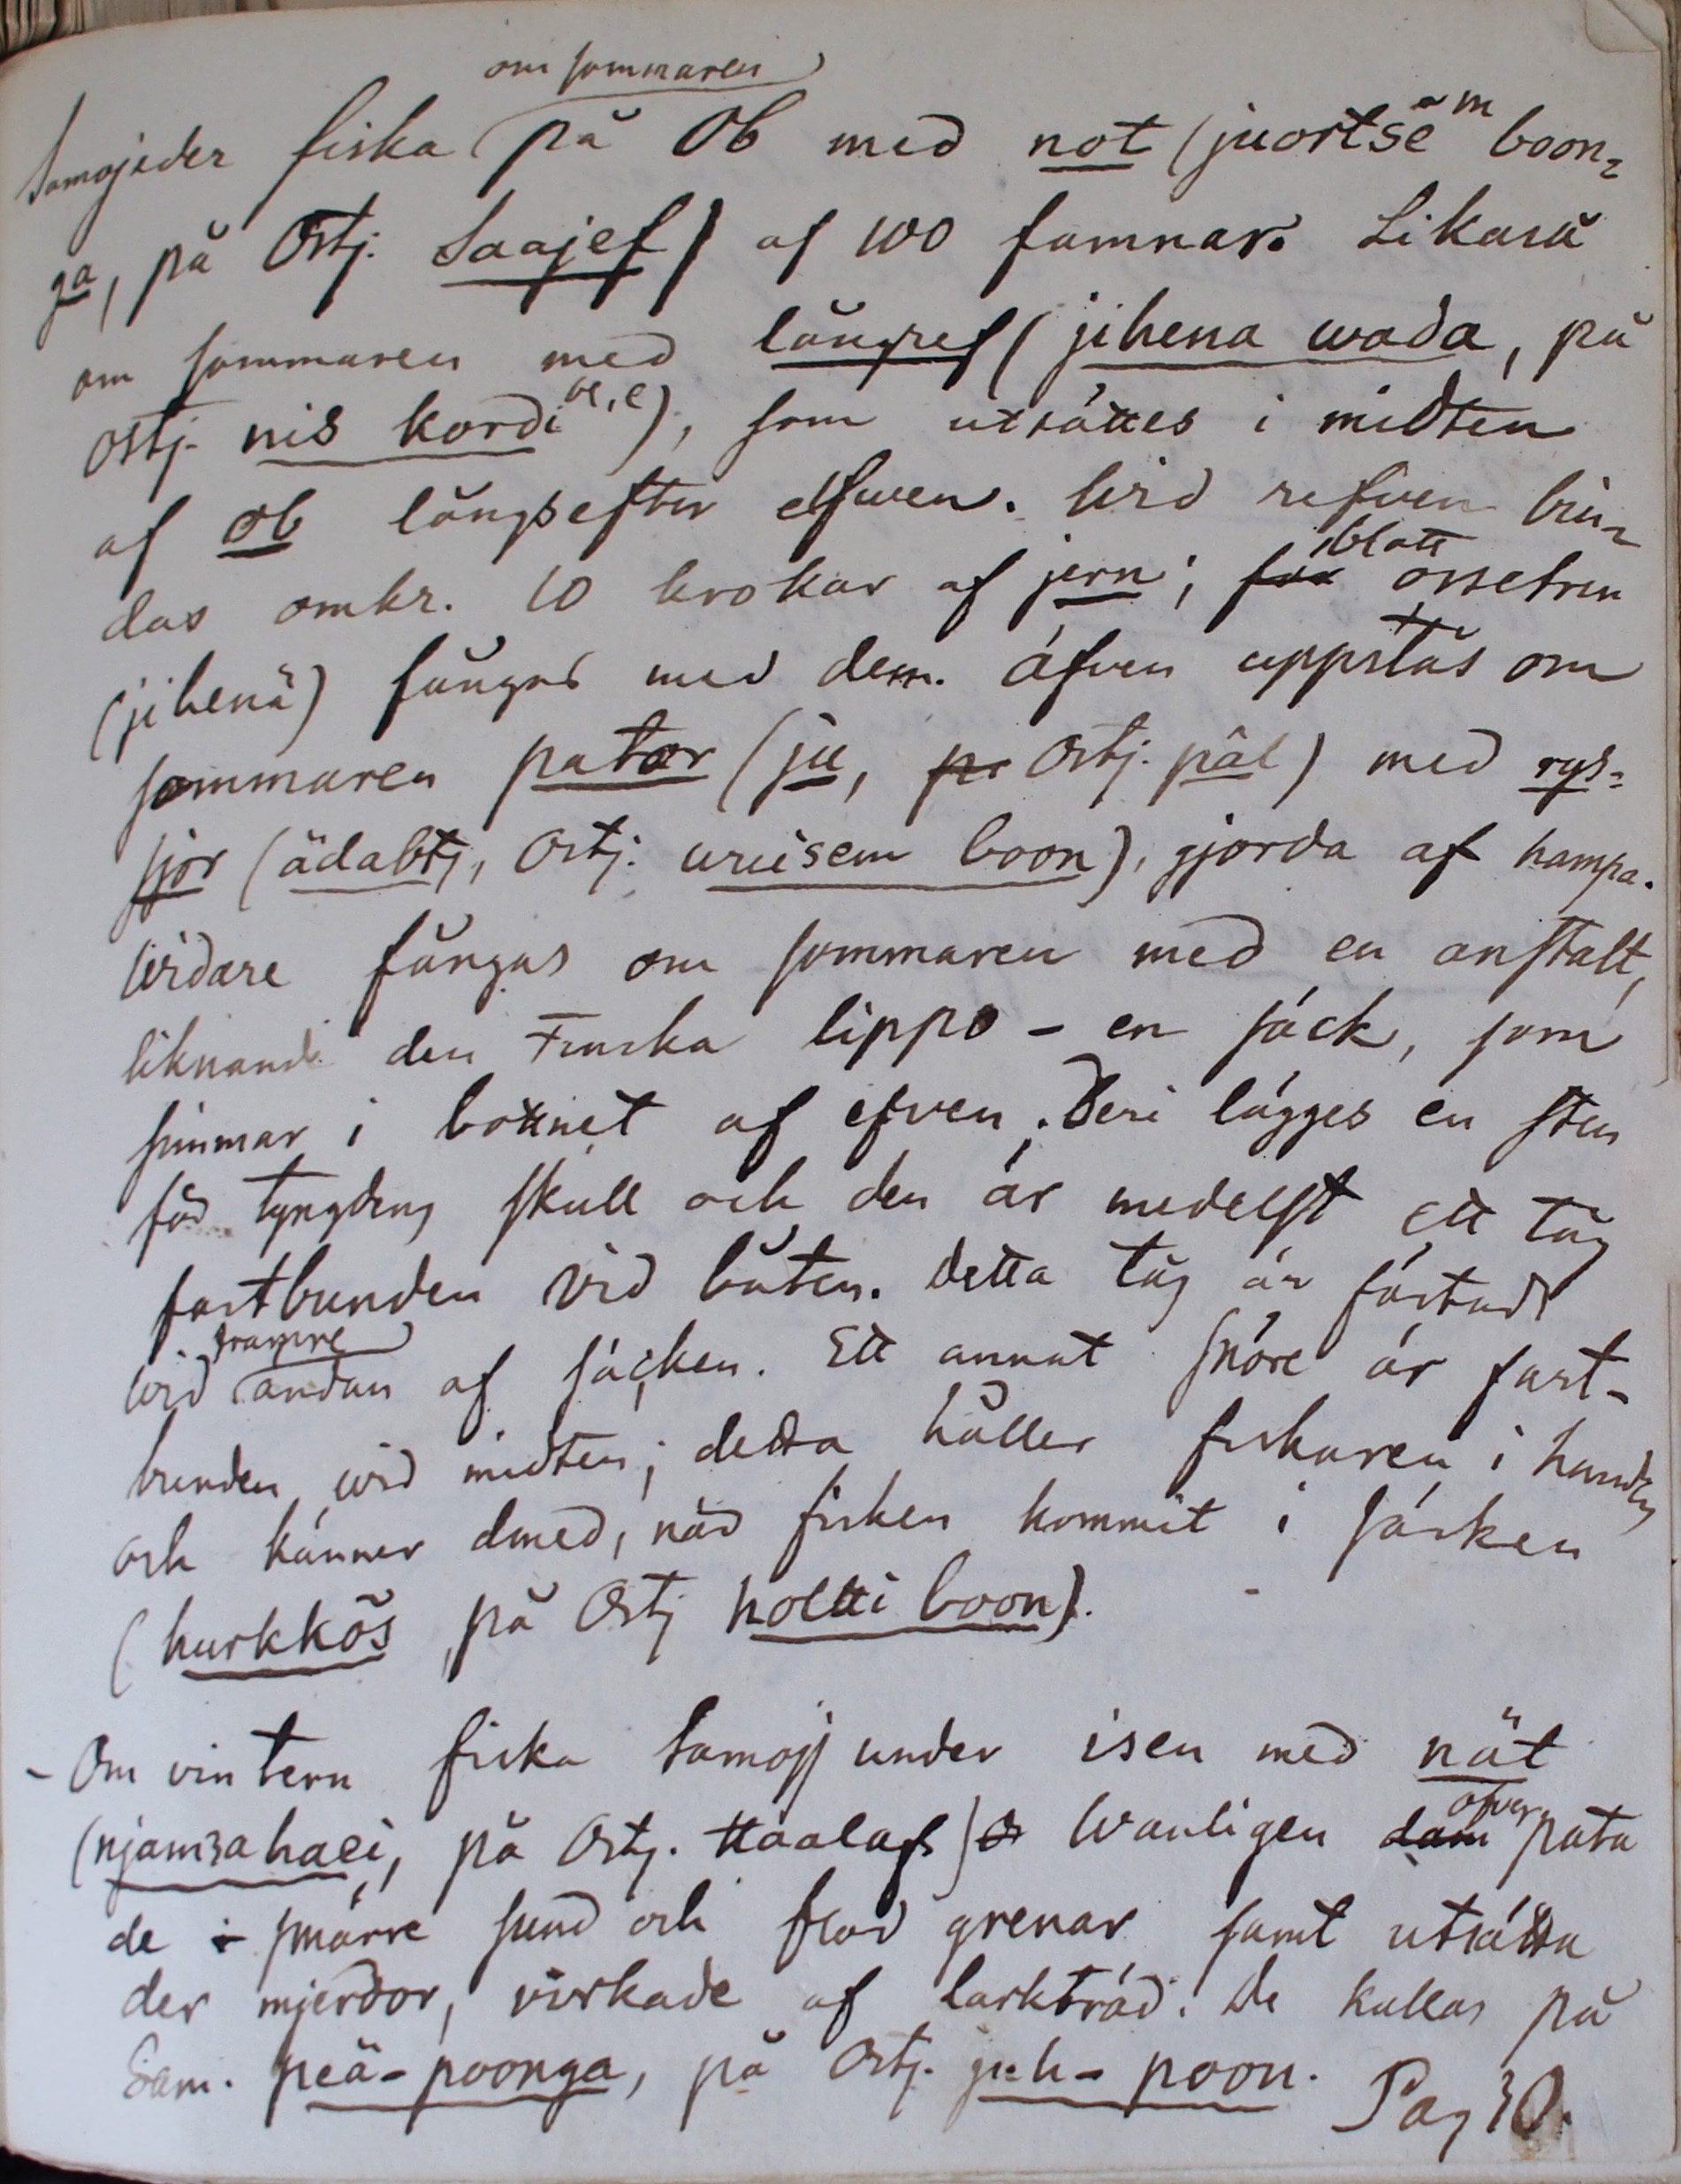 om sommaren
Samojeder fiska på Ob med not (juortsēm boon-
ga, på Ostj. Saajef) af 100 famnar. Likaså
om sommaren med långref (jihena wada, på
Ostj. nis kordi æ, e), som utsättes i midten
af Ob långsefter elfven. Wid refven bin-
das omkr. 10 krokar af jern; fåx blott osseteren
(jihenä) fångas med dem. Äfven uppstås om
sommaren pator (ju, på Ostj. pâl) med rys-
sjor (ädabtj, Ostj. uruisem boon), gjorda af hampa.
Widare fångas om sommaren med en anstalt,
liknande den Finska lippo - en säck, som
simmar i bottnet af efven. Deri lägges en sten
för tyngdens skull och den är medelst ett tåg
fastbunden vid båten. Detta tåg är fästadt
wid framre ändan af säcken. Ett annat snöre är fast-
bunden wid midten; detta håller fiskaren i handen
och känner dmed, när fisken kommit i säcken
(hurkkõs på Ostj holtti boon).
- Om vintern fiska Samojj under isen med nät
(njamsahaei, på Ostj. ttaalafs) Wanligen dam öfver pata
de i smärre sund och flod grenar samt utsätta
der mjerdor, virkade af lärkträd. De kallas på
Sam. peä-poonga, på Ostj. juh-poon. Pag 30.